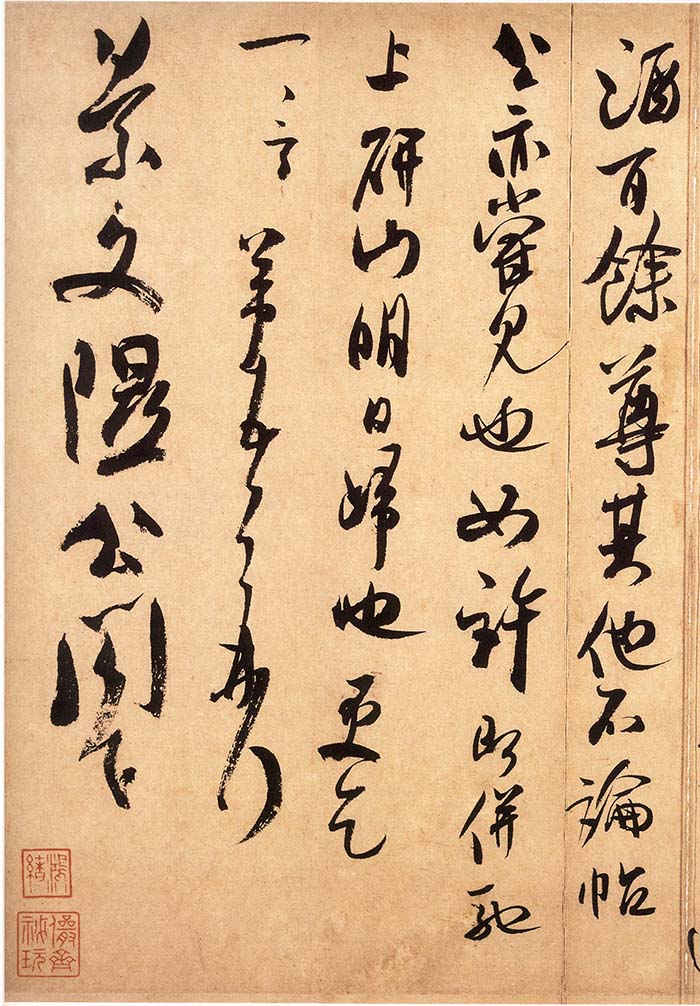 酒百餘尊其他不論帖
公亦嘗見也如許即併馳
上研山明日歸也更乞
一言芾頓首再拜
景文隰公閣下
鴻緒
儼齋祕玩